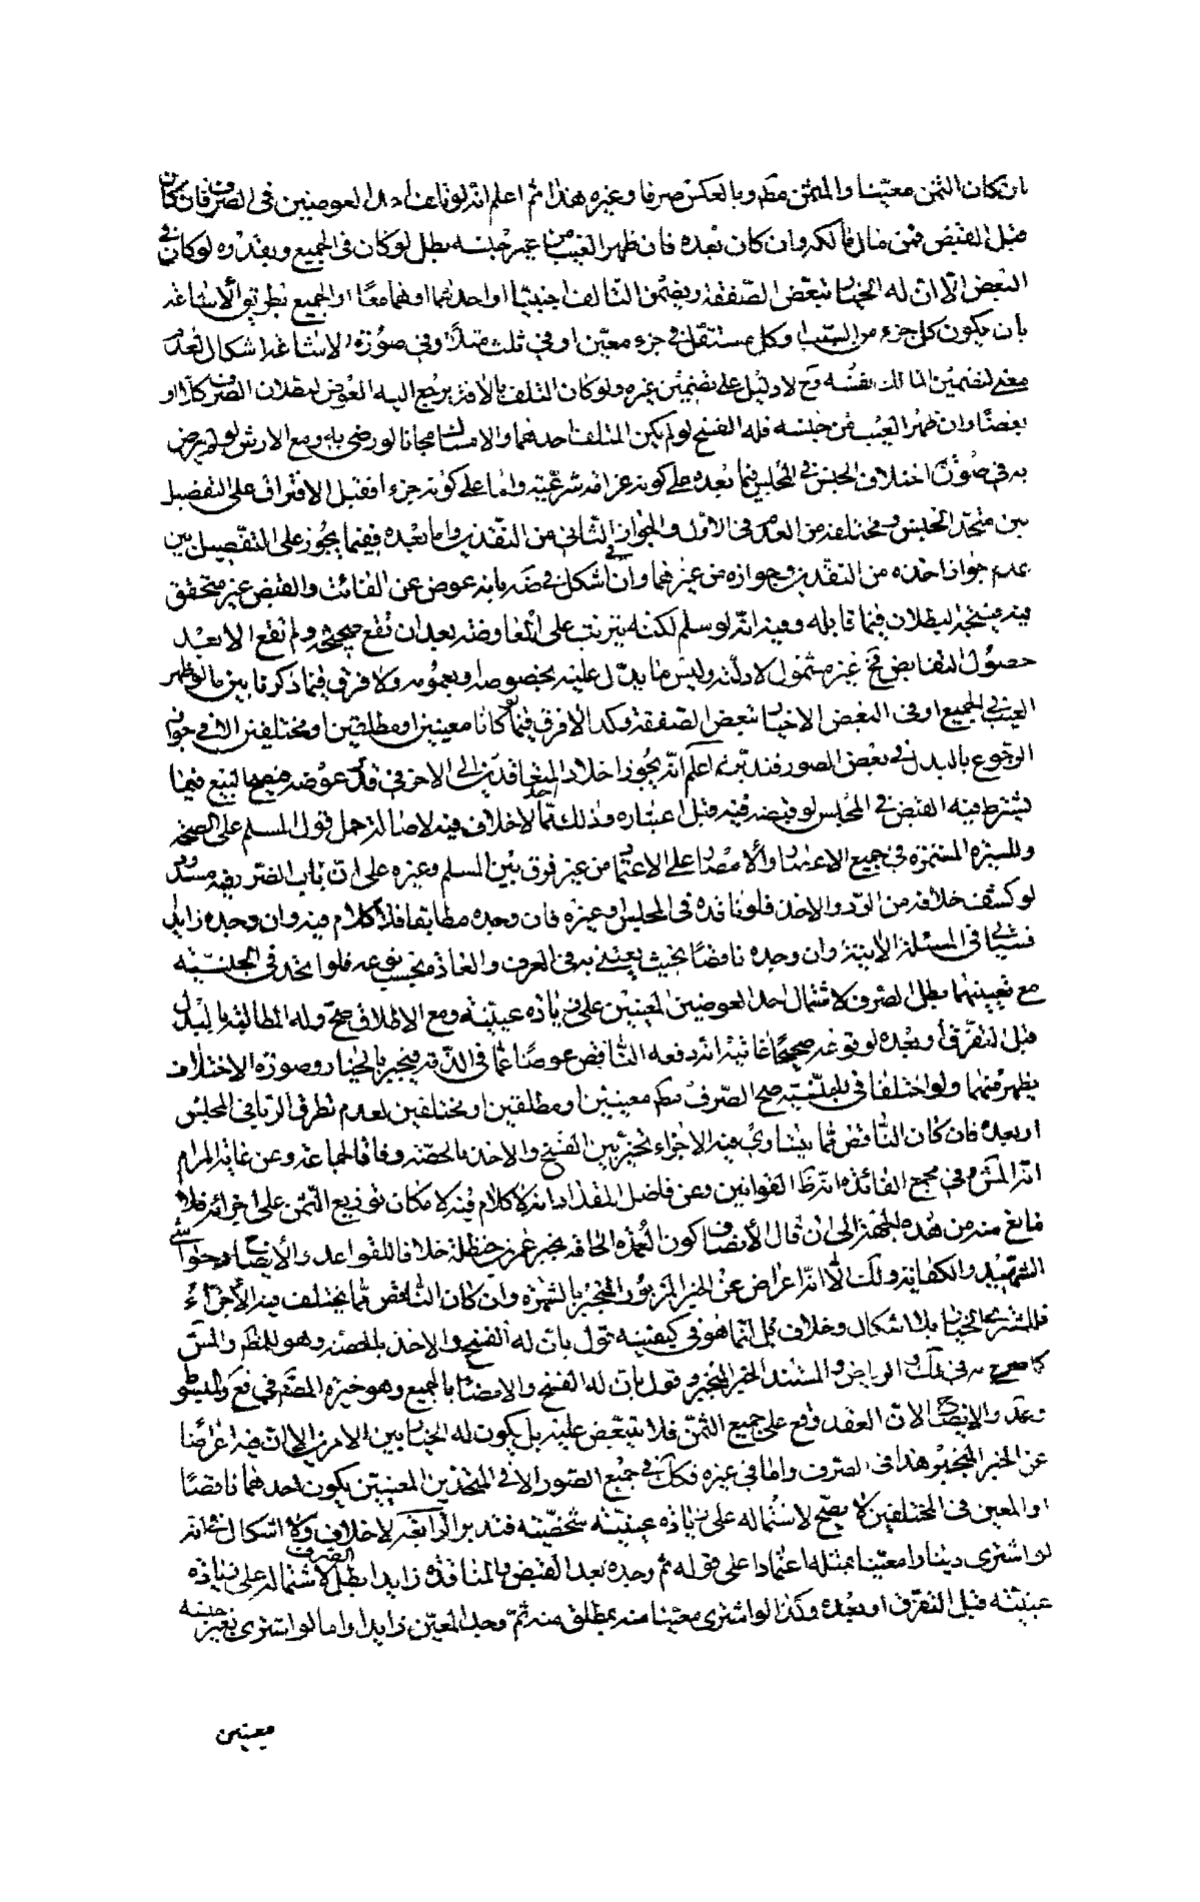 ان كان الثمن معيّنا والمثمن مط وبالعكس صرفا وغيره هذا ثم اعلم انّه لو احد العوضين فى الصرف فان كان
قبل القبض فمن مال مالكه وان كان بعده فان ظهر العيب من غير جنسه بطل لو كان فى الجميع وبقدره لو كان فى
البعض الّا انّ له الخيار تبعّض الصّفقة ويضمن التالف اجنبيّا او احدهما او هما معًا او الجميع بطريق الاشاعة
بان يكون كل جزء من السّبب وكل مستقل فى جزء معيّن او فى ثلث مثلا وفى صورة الاشاعة اشكال لعدم
معنى لتضمين المالك نفسه وح لا دليل على تضمين غيره ولو كان التلف بالافة يرجع اليه العوض لبطلان الصرف كلا او
بعضًا وان ظهر العيب من جنسه فله الفسخ لو لم يكن المتلف احدهما والامساك مجانا لو رضى به ومع الارش لو لم يرض
به فى صورة اختلاف الجنس فى المجلس فيما بعده على كونه غرامة شرعيّة واما على كونه جزء افقبل الافتراق على التفصيل
بين متّحد الجنس ومختلفه من العدم فى الاوّل والجواز الثانى من النقدين واما بعده ففيما يجوز على التفصيل بين
عدم جواز اخذه من النقدين وجوازه من غيرهما وان اشكل فى بانه عوض عن الفائت والقبض غير متحقق
فيه فيتجه البطلان فيما قابله وفيه انّه لو سلم لكنه يترتب على المعاوضة بعد ان تقع صحيحة ولم تقع الا بعد
حصول التقابض فح غير مشمول لادلته وليس ما يدل عليه بخصوصه او بعمومه ولا فرق فيما ذكرنا بين ما لو ظهر
العيب فى الجميع او فى البعض الا خيار تبعض الصفقة وكذا لا فرق فيما لو كانا معينين او مطلقين او مختلفين الا فى جواز
الرجوع بالبدل فى بعض الصور فتدبّر ثم اعلم انّه يجوز اخلاد احد المتعاقدين الى الاخر فى قدر عوضه فيصح البيع فيما
يشترط فيه القبض فى المجلس لو قبضه فيه قبل اعتباره وذلك ممّا لا خلاف فيه لاصالة حمل قول المسلم على الصحّة
وللسيرة المستمرة فى جميع الاعصار والامصار على الاعتماد من غير فرق بين المسلم وغيره على انّ باب الضّرر فيه مسدود
لو كشف خلافه من الردّ والاخذ فلو ناقده فى المجلس وغيره فان وجده مطابقا فلا كلام فيه وان وجده زايدا
فسيأتى فى المسئلة الاتية وان وجده ناقصًا بحيث يعتنى به فى العرف والعادة بحسب نوعه فلو اتحد فى الجنسيّة
مع تعيينهما بطل الصّرف لاشتمال احد العوضين المعيّنين على زيادة عينيّة ومع الاطلاق صحّ وله المطالبة بالبدل
قبل التفرّق او بعده لوقوعه صحيحًا غايته انّه دفعه الناقص عوضًا عمّا فى الذّمة فينجبر بالخيار وصورة الاختلاف
يظهر منهما ولو اختلفا فى الجنسيّة صح الصّرف مط معينين او مطلقين او مختلفين لعدم تطرق الربا فى المجلس
او بعده فان كان الناقص ممّا يتساوى فيه الاجزاء تخيّر بين الفسخ والاخذ بالحصّة وفاقا لجماعة وعن غاية المرام
انّه المش وفى مجمع الفائدة انّه ظ القوانين وعن فاضل المقداد انّه لا كلام فيه لامكان توزيع الثمن على اجزائه فلا
مانع منه من هذه الجهة الى ان قال الانصاف كون العمدة الخاقه بخبر عمر بن حنظلة خلافا للقواعد والايضاح وحواشى
الشهيد والكفاية ولك الا انّه اعراض عن الخبر المزبور المنجبر بالشهرة وان كان الناقص ممّا يختلف فيه الأجزاء
فللمشترى الخيار بلا اشكال وخلاف بل انّما هو فى كيفيّته قول بان له الفسخ والاخذ بالحصّة وهو للمط والمش
كما صرح به فى لك والرياض والمستند الخبر المنجبر وقول بان له الفسخ والامضاء بالجميع وهو خيرة المصّ فى فع والمبسوط
وعد والايضاح لانّ العقد وقع على جميع الثمن فلا يتبعّض عليه بل يكون له الخيار بين الامرين الا انّ فيه اعراضا
عن الخبر المنجبر هذا فى الصّرف واما فى غيره فكك فى جميع الصّور الا فى المتحدين المعينين يكون احدهما ناقصًا
او المعين فى المختلفين لا يصّح لاشتماله على زيادة عينيّة شخصيّة فتدبر الرابعة لا خلاف ولا اشكال فى انّه
لو اشترى دينارا معينا بمثله اعتمادا على قوله ثم وجده بعد القبض والمناقدة زايدا بطل الصّرف لاشتماله على زيادة
عينيّة قبل التفرّق او بعده وكذا لو اشترى معيّنا منه بمطلق منه ثمّ وجد المعيّن زايدا واما لو اشترى بغير جنسه
معينين